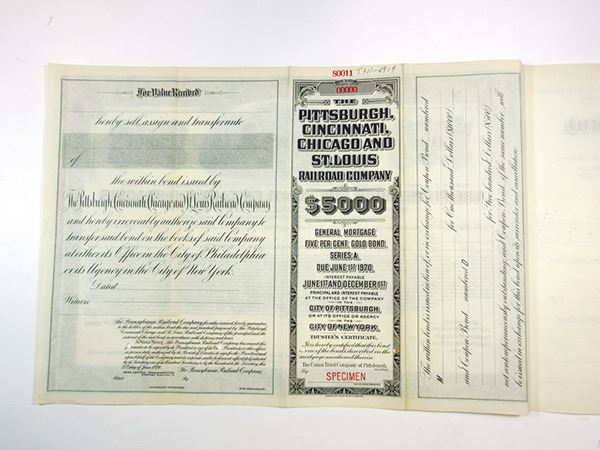 For Value Received
hereby sell, assign and transfer unto
of
the within bond issued by
The Pittsburgh, Cincinnati, Chicago and St. Louis Railroad Company
and hereby irrevocably authorize said Company to
transfer said bond on the books of said Company
at either its Office in the City of Philadelphia
or its Agency in the City of New York.
Dated
Witness
The Pennsylvania Railroad Company, for value received, hereby guarantees
The Pennsylvania Railroad Company,
Attest By
80011 T311-2909
00000
THE
PITTSBURGH,
CINCINNATI,
CHICAGO AND
ST. LOUIS
RAILROAD COMPANY
$5000
GENERAL MORTGAGE
FIVE PER CENT. GOLD BOND,
SERIES A,
DUE JUNE 1ST 1970.
INTEREST PAYABLE
JUNE 1ST AND DECEMBER 1ST
PRINCIPAL AND INTEREST PAYABLE
AT THE OFFICE OF THE COMPANY
IN THE
CITY OF PITTSBURGH,
OR AT ITS OFFICE OR AGENCY
IN THE
CITY OF NEW YORK.
TRUSTEE'S CERTIFICATE.
It is hereby certified that this bond
is one of the bonds described in the
mortgage mentioned therein.
The Union Trust Company of Pittsburgh,
By
SPECIMEN
The within bond is issued in lieu of, or in exchange for Coupon Bond numbered
M for One thousand Dollars ($1000)
and Coupon Bond numbered D
for Five hundred Dollars ($500)
not contemporaneously outstanding, and Coupon Bond of the same number, will
be issued in exchange for this bond upon its surrender and cancellation.